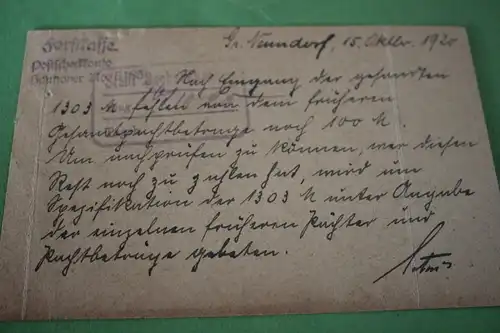 Forstkasse
Postscheckkonto
Hannover
Gr. Nenndorf, 15. Oktbr. 1920
Nach Eingang der gesandten
1303 M fehlen von dem früheren
Gesamtpachtbetrage noch 100 M.
Um nachprüfen zu können, wer diesen
Rest noch zu zahlen hat, wird um
Spezifikation der 1303 M unter Angabe
der einzelnen früheren Pächter und
Pachtbeträge gebeten.